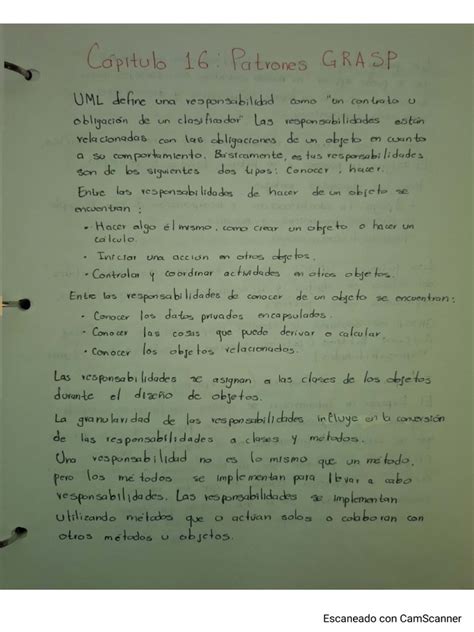 Capitulo 16: Patrones GRASP
UML define una responsabilidad como "un contrato u
obligación de un clasificador" Las responsabilidades están
relacionadas con las obligaciones de un objeto en cuanto
a su comportamiento. Básicamente, estas responsabilidades
son de los siguientes dos tipos: Conocer, hacer.
Entre las responsabilidades de hacer de un objeto se
encuentran:
• Hacer algo él mismo, como crear un objeto o hacer un
cálculo.
• Iniciar una acción en otros objetos.
• Controlar y coordinar actividades en otros objetos.
Entre las responsabilidades de conocer de un objeto se encuentran:
• Conocer los datos privados encapsulados.
• Conocer las cosas que puede derivar o calcular.
• Conocer los objetos relacionados.
Las responsabilidades se asignan a las clases de los objetos
durante el diseño de objetos.
La granularidad de las responsabilidades influye en la conversión
de las responsabilidades a clases y métodos.
Una responsabilidad no es lo mismo que un método,
pero los métodos se implementan para llevar a cabo
responsabilidades. Las responsabilidades se implementan
utilizando métodos que o actúan solos o colaboran con
otros métodos u objetos.
Escaneado con CamScanner